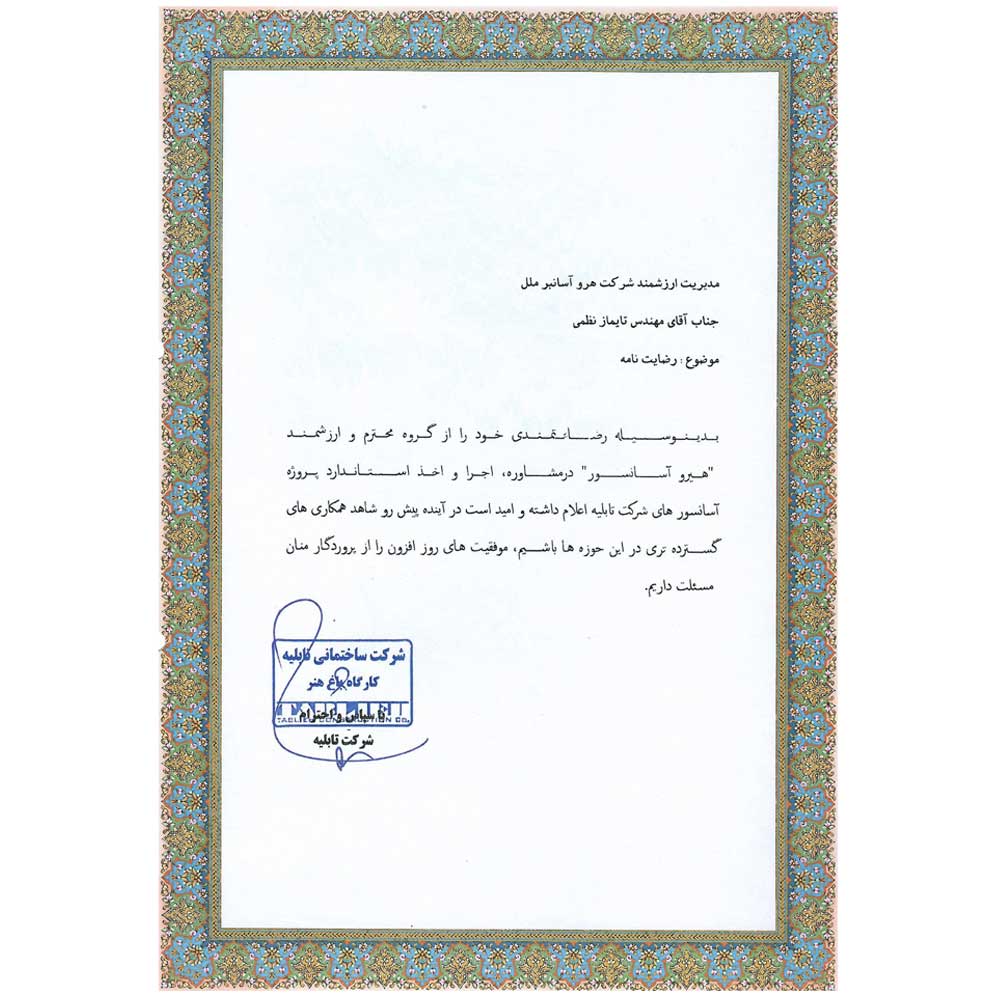 مدیریت ارزشمند شرکت هرو آسانبر ملل
جناب آقای مهندس تایماز نظمی
موضوع : رضایت نامه
بدینوسیله رضایتمندی خود را از گروه محترم و ارزشمند
"هیرو آسانسور" درمشاوره، اجرا و اخذ استاندارد پروژه
آسانسور های شرکت تابلیه اعلام داشته و امید است در آینده پیش رو شاهد همکاری های
گسترده تری در این حوزه ها باشیم، موفقیت های روز افزون را از پروردگار منان
مسئلت داریم.
شرکت ساختمانی تابلیه
کارگاه باغ هنر
با سپاس و احترام
شرکت تابلیه